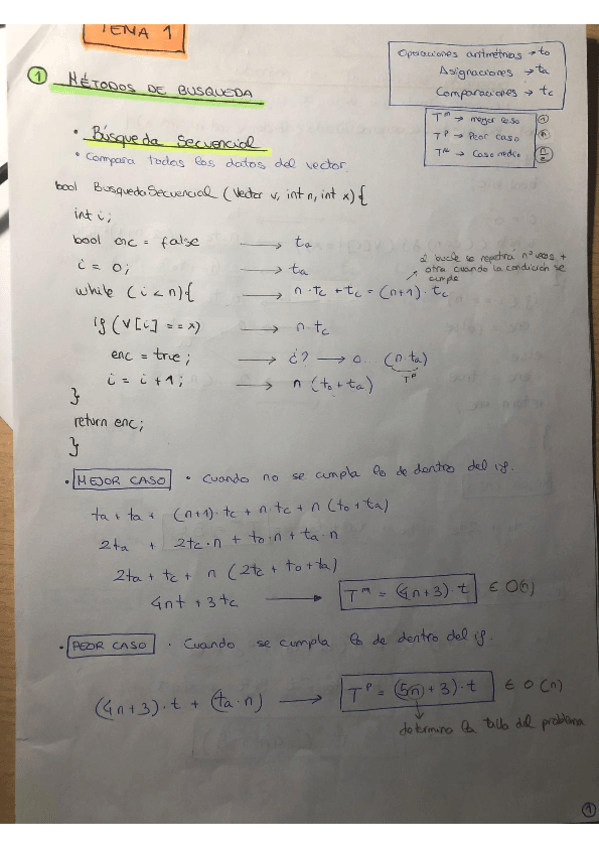 TEMA 1
Operaciones aritmétricas → to
Asignaciones → ta
Comparaciones → tc
① MÉTODOS DE BUSQUEDA
T^m → mejor caso ①
T^P → Peor caso
Caso medio
• Búsqueda Secuencial
• Compara todos los datos del vector.
bool BusquedaSecuencial (Vector v, int n, int x){
int i;
bool enc = false → ta
i = 0; → ta
el bucle se repetira n veces +
otra cuando la condición se
cumple
while (i < n){ → n · tc + tc = (n+1) · tc
if (V[i] == x) → n tc
enc = true; → ¿? → 0. (n·ta)
T^P
i = i + 1; → n (to + ta)
}
return enc;
}
• MEJOR CASO • Cuando no se cumpla lo de dentro del if.
ta + ta + (n+1)·tc + n·tc + n(to+ta)
2ta + 2tc·n + to·n + ta·n
2ta + tc + n (2tc + to + ta)
4nt + 3tc → T^m = (4n+3)·t ∈ O(n)
• PEOR CASO · Cuando se cumpla lo de dentro del if.
(4n+3)·t + (ta·n) → T^P = (5n+3)·t ∈ O(n)
determina la talla del problema
①